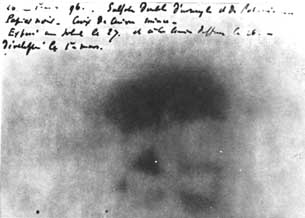 96. Sulfate Double d'uranyle et de Potassium
Papier noir. Croix de Cuivre mince.
Exposé au soleil le 27. et à la lumière diffuse le 26. -
Développé le 1er mars.